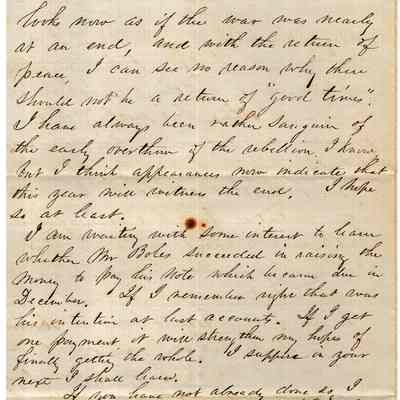 looks now as if the war was nearly
at an end, and with the return of
peace, I can see no reason why there
should not be a return of "good times".
I have always been rather sanguin of
the early overthrow of the rebellion I know
but I think appearances now indicate that
this year will witness the end. I hope
so at least.
I am waiting with some interest to learn
whether Mr Boles succeeded in raising the
money to pay his note which became due in
December. If I remember right that was
his intention at last accounts. If I get
one payment it will strengthen my hopes of
finally getting the whole. I suppose in your
next I shall learn.
If you have not already done so I